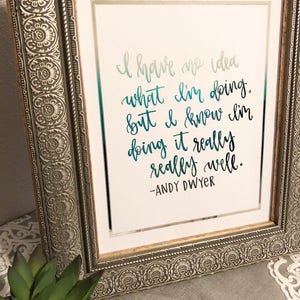 I have no idea
what I'm doing,
but I know I'm
doing it really
really well.
-ANDY DWYER